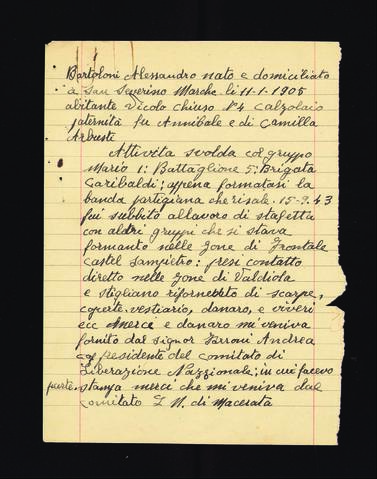 Bartoloni Alessandro nato e domiciliato
a San Severino Marche li 11-1-1905
abitante Vicolo Chiuso N°4 Calzolaio
paternità fu Annibale e di Camilla
Arbuste
Attivita svolda col gruppo
Mario 1: Battaglione 5: Brigata
Garibaldi; appena formatasi la
banda partigiana che risale. 15-9.43
fui subbito al lavoro di stafetta
con aldri gruppi che si stava
formanto nelle zone di Frontale
Castel Sanpietro: presi contatto
diretto nelle zone di Valdiola
e Stigliano di scarpe,
coperte, vestiario, danaro, e viveri
ecc merce e danaro mi veniva
fornito dal Signor Farroni Andrea
col presidente del comitato di
Liberazione Nazzionale; in cui facevo
parte, merci che mi veniva dal
Comitato L N. di Macerata